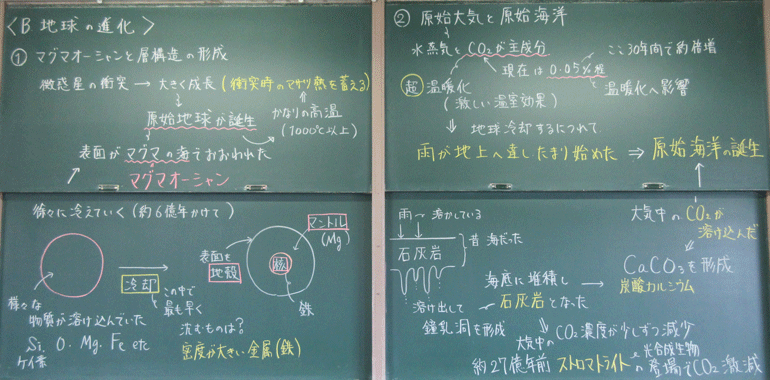 〈B 地球の進化〉
① マグマオーシャンと層構造の形成
微惑星の衝突 → 大きく成長 (衝突時のマサツ熱を蓄える)
原始地球が誕生
かなりの高温
(1000℃以上)
表面がマグマの海でおおわれた
マグマオーシャン
徐々に冷えていく (約6億年かけて)
様々な
物質が溶け込んでいた
Si, O, Mg, Fe etc
ケイ素
冷却
この中で
最も早く
沈むものは?
密度が大きい金属(鉄)
表面を
地殻
マントル
(Mg)
核
鉄
② 原始大気と原始海洋
水蒸気とCO₂が主成分
現在は0.05%程
ここ30年間で約倍増
超 温暖化
(激しい温室効果)
温暖化へ影響
⇓ 地球冷却するにつれて
雨が地上へ達したまり始めた ⇒ 原始海洋の誕生
雨 溶かしている
石灰岩
昔海だった
溶け出して
鍾乳洞を形成
大気中のCO₂が
溶け込んだ
CaCO₃を形成
炭酸カルシウム
海底に堆積し
石灰岩となった
大気中の
CO₂濃度が少しずつ減少
約27億年前 ストロマトライト 光合成生物
の登場でCO₂激減